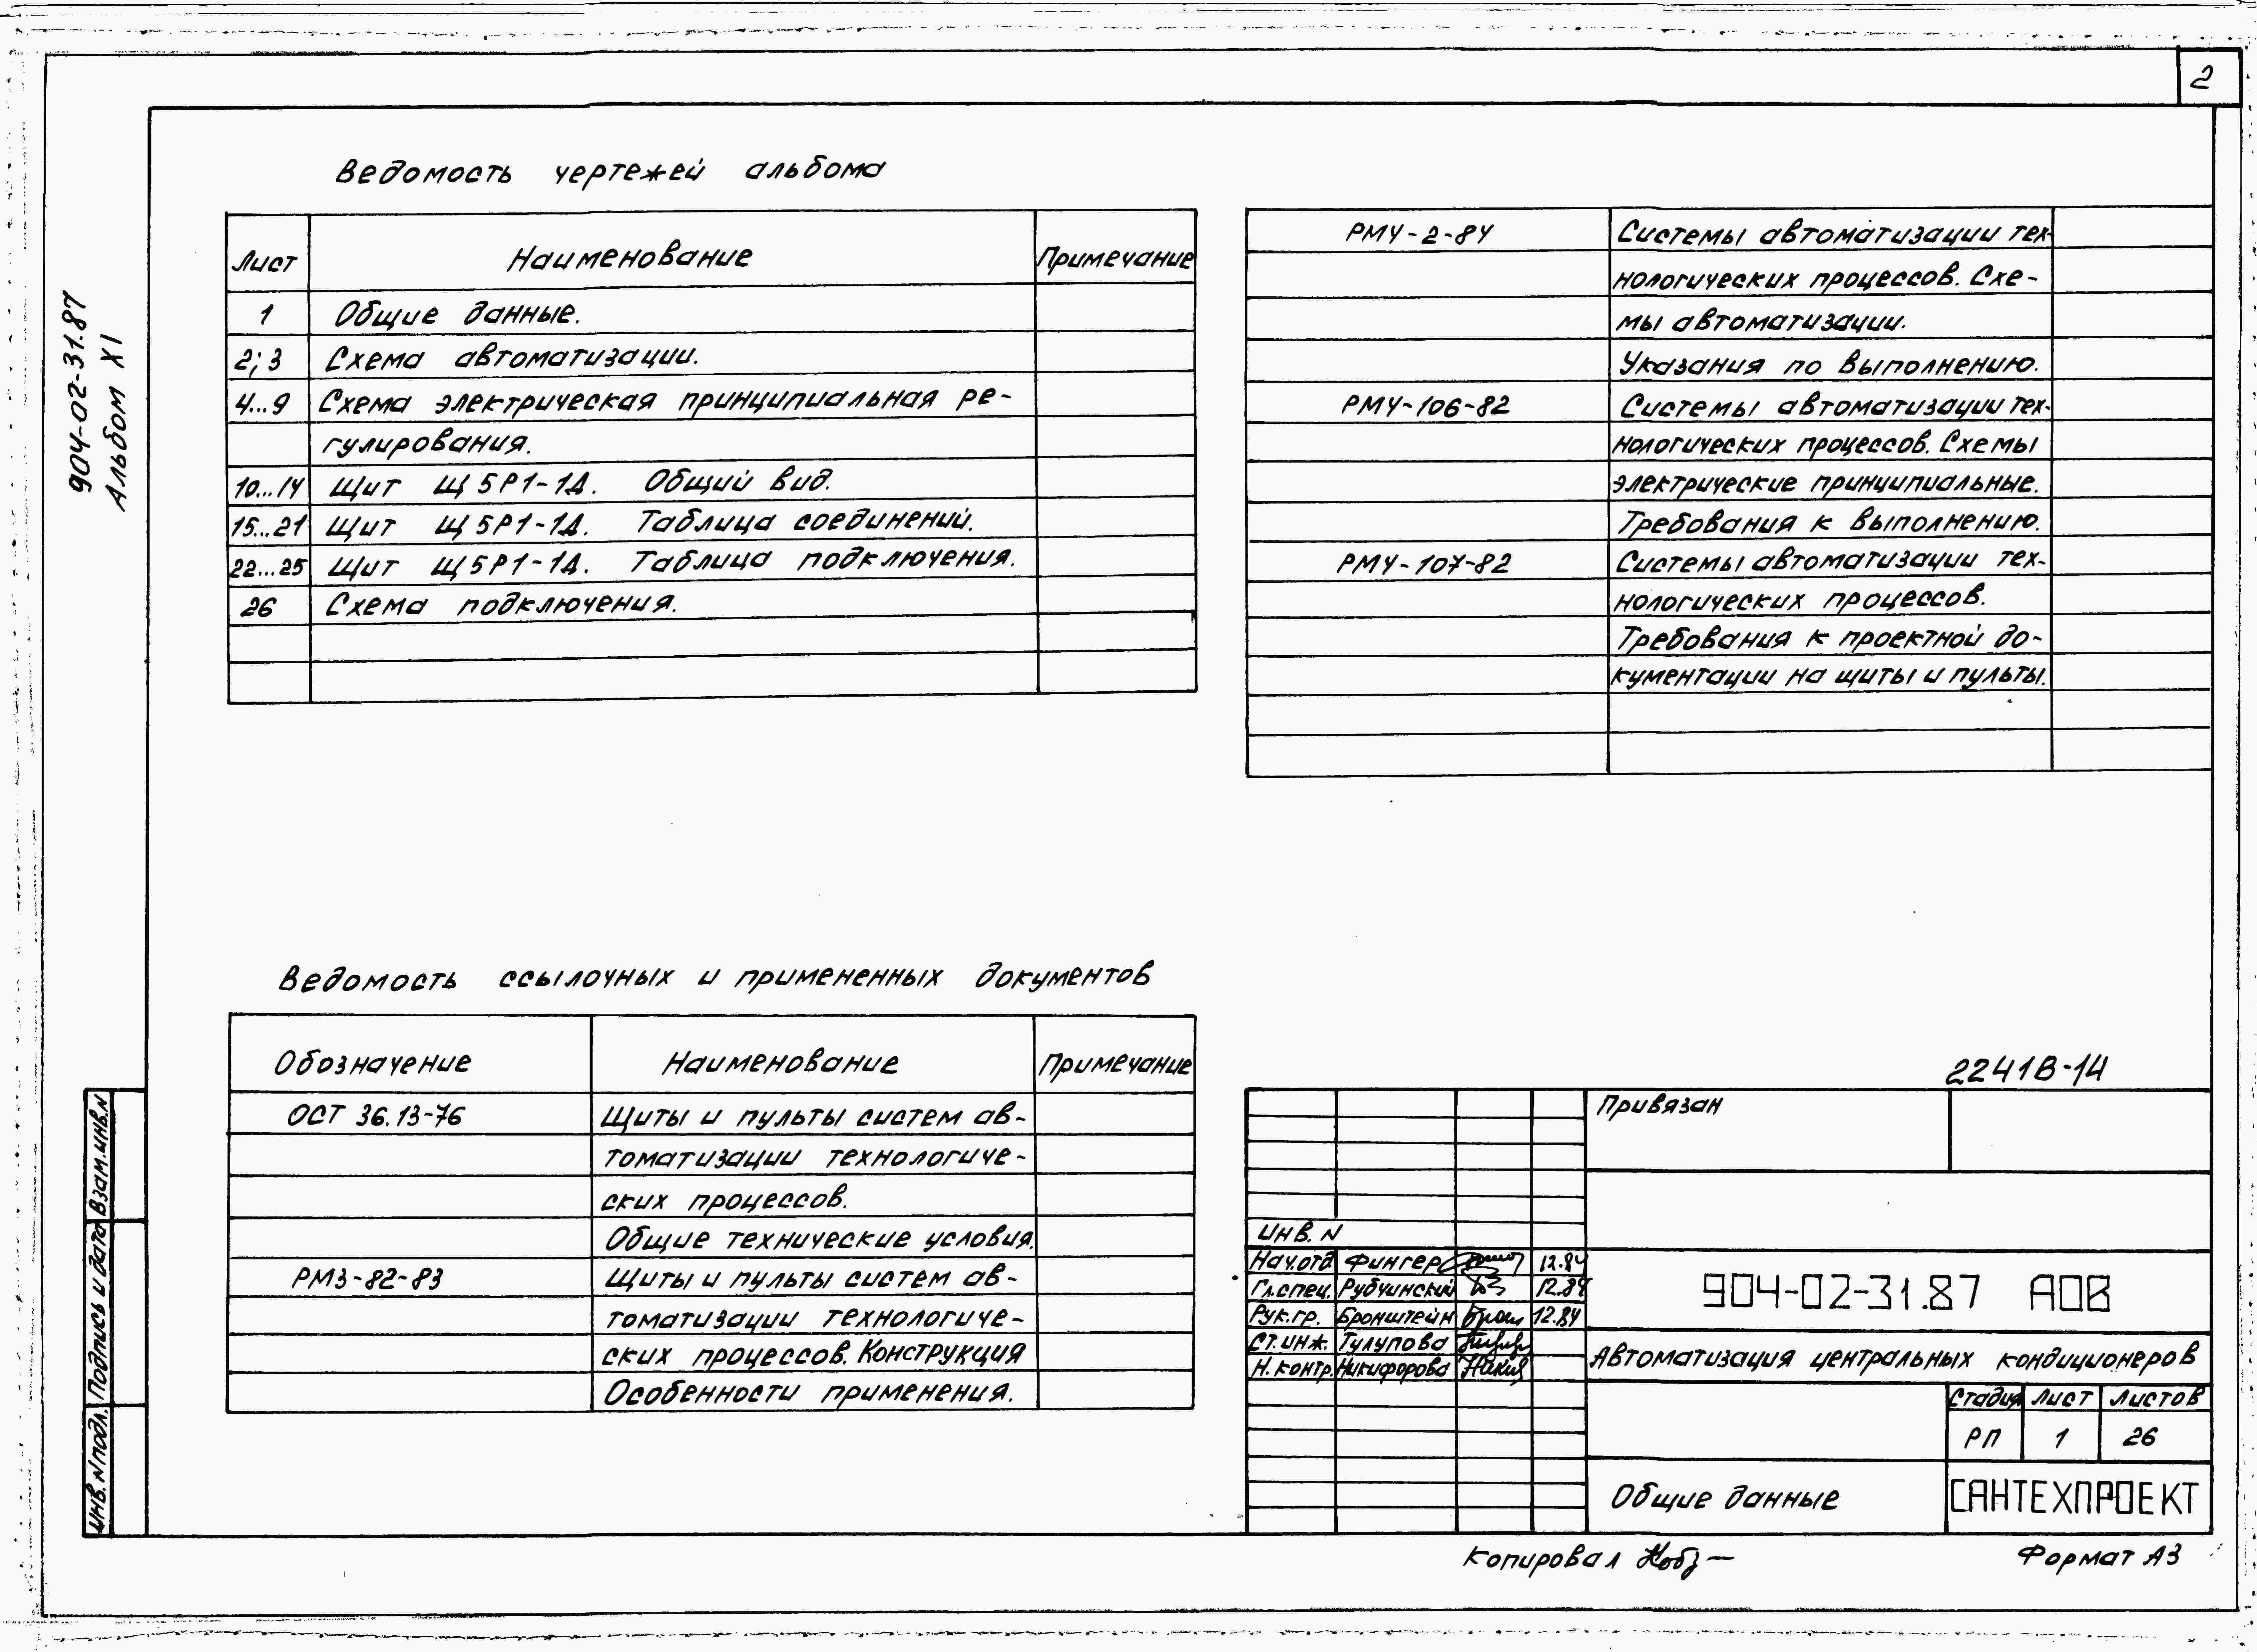 2
904-02-31.87
Альбом XI
Ведомость чертежей альбома
Лист Наименование Примечание
1 Общие данные.
2; 3 Схема автоматизации.
4...9 Схема электрическая принципиальная ре-
гулирования.
10...14 Щит Щ5Р1-1Д. Общий вид.
15...21 Щит Щ5Р1-1Д. Таблица соединений.
22...25 Щит Щ5Р1-1Д. Таблица подключения.
26 Схема подключения.
РМ4-2-84 Системы автоматизации тех-
нологических процессов. Схе-
мы автоматизации.
Указания по выполнению.
РМ4-106-82 Системы автоматизации тех-
нологических процессов. Схемы
электрические принципиальные.
Требования к выполнению.
РМ4-107-82 Системы автоматизации тех-
нологических процессов.
Требования к проектной до-
кументации на щиты и пульты.
Ведомость ссылочных и примененных документов
Обозначение Наименование Примечание
ОСТ 36.13-76 Щиты и пульты систем ав-
томатизации технологиче-
ских процессов.
Общие технические условия.
РМ3-82-83 Щиты и пульты систем ав-
томатизации технологиче-
ских процессов. Конструкция
Особенности применения.
Взам.инв.N
Подпись и дата
Инв.N подл.
22418-14
Привязан
Инв. N
Нач.отд Фингер 12.84
Гл.спец. Рубчинский 12.84
Рук.гр. Бронштейн 12.84
Ст.инж. Тулупова
Н.контр. Никифорова
904-02-31.87 АОВ
Автоматизация центральных кондиционеров
Стадия Лист Листов
РП 1 26
Общие данные
САНТЕХПРОЕКТ
Копировал
Формат А3